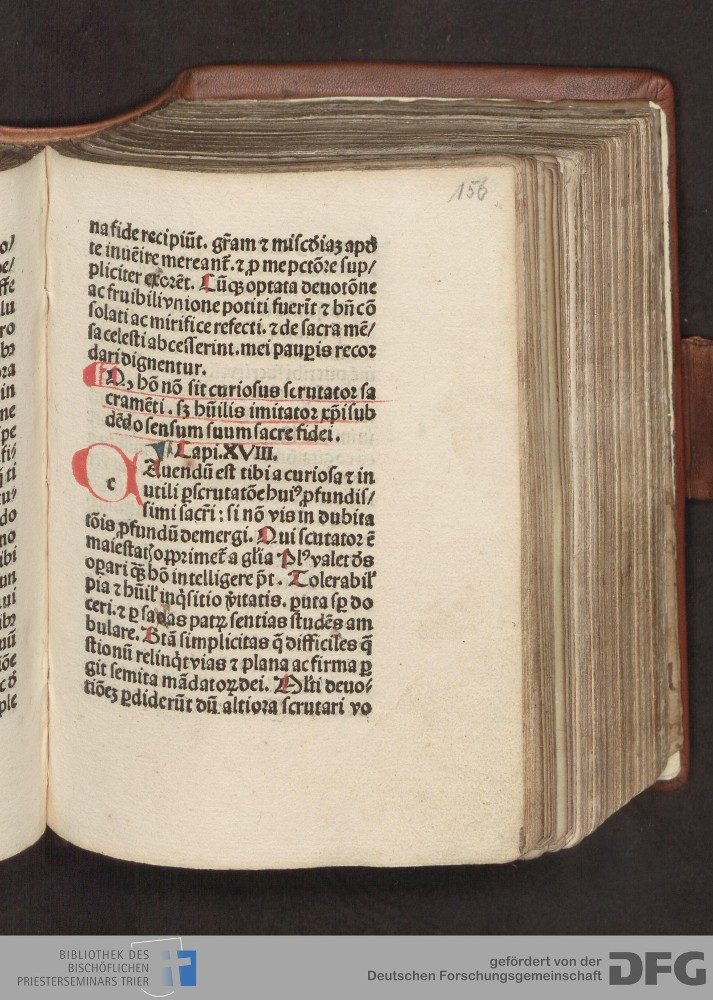 156
na fide recipiūt. grām ⁊ misc̄diaȝ apd̄
te inuēire mereant̄. ⁊ ꝓ me pctōre sup/
pliciter exorēt. Cūqȝ optata deuotōne
ac fruibili vnione potiti fuerīt ⁊ bn̄ cō
solati ac mirifice refecti. ⁊ de sacra mē/
sa celesti abcesserint. mei paupis recor
dari dignentur.
Q, hō nō sit curiosus scrutator sa
cramēti. sȝ hūilis imitator xp̄i sub
dēdo sensum suum sacre fidei.
Capi. XVIII.
c Auendū est tibi a curiosa ⁊ in
utili ꝑscrutatōe huiꝰ ꝓfundis/
simi sacr̄i: si nō vis in dubita
tōis ꝓfundū demergi. Qui scutator ē
maiestatꝭ opprimet̄ a gl̄ia Plꝰ valet d̄s
oꝑari q̄ȝ hō intelligere pt̄. Tolerabil̄
pia ⁊ hūil̄ inq̄sitio v̄itatis. ꝑata sꝑ do
ceri. ⁊ ꝑ sanas patꝝ sentias studēs am
bulare. Btā simplicitas q̄ difficiles q̄
stionū relinq̄t vias ⁊ plana ac firma ꝑ
git semita mādatoꝝ dei. Ml̄ti deuo/
tiōeȝ ꝑdiderūt dū altiora scrutari vo
BIBLIOTHEK DES
BISCHÖFLICHEN
PRIESTERSEMINARS TRIER
gefördert von der
Deutschen Forschungsgemeinschaft
DFG